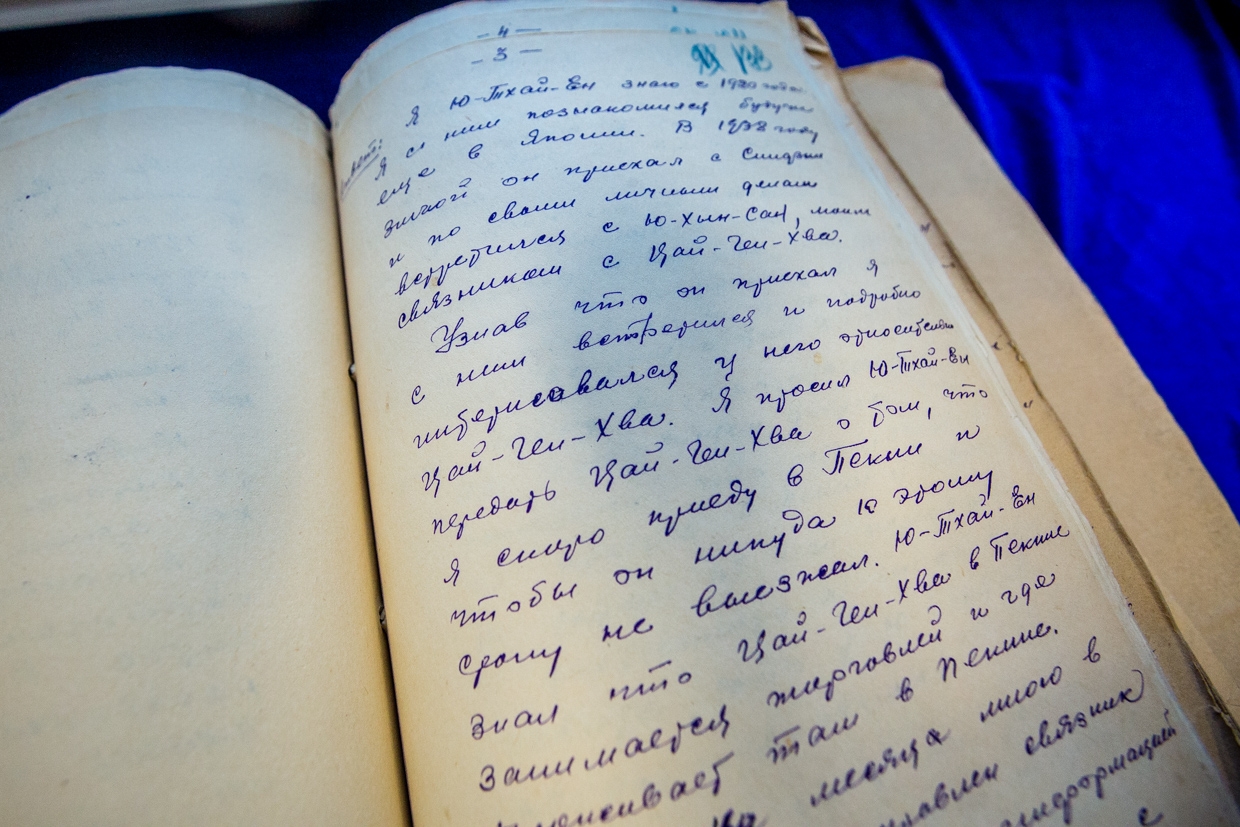 - 4 -
- 3 -
Ответ: Я Ю-Тхай-Ен знаю с 1920 года.
Я с ним познакомился будучи
еще в Японии. В 1938 году
зимой он приехал с
и по своим личным делам
встретился с Ю-Хын-Сан, моим
связником с Цай-Ген-Хва.
Узнав что он приехал я
с ним встретился и подробно
интерисовался у него относительно
Цай-Ген-Хва. Я просил Ю-Тхай-Ен
передать Цай-Ген-Хва о том, что
я скоро приеду в Пекин и
чтобы он никуда к этому
сроку не выезжал. Ю-Тхай-Ен
знал что Цай-Ген-Хва в Пекине
занимается торговлей и где
проживает там в Пекине.
месяца мною в
связник
информацией
с